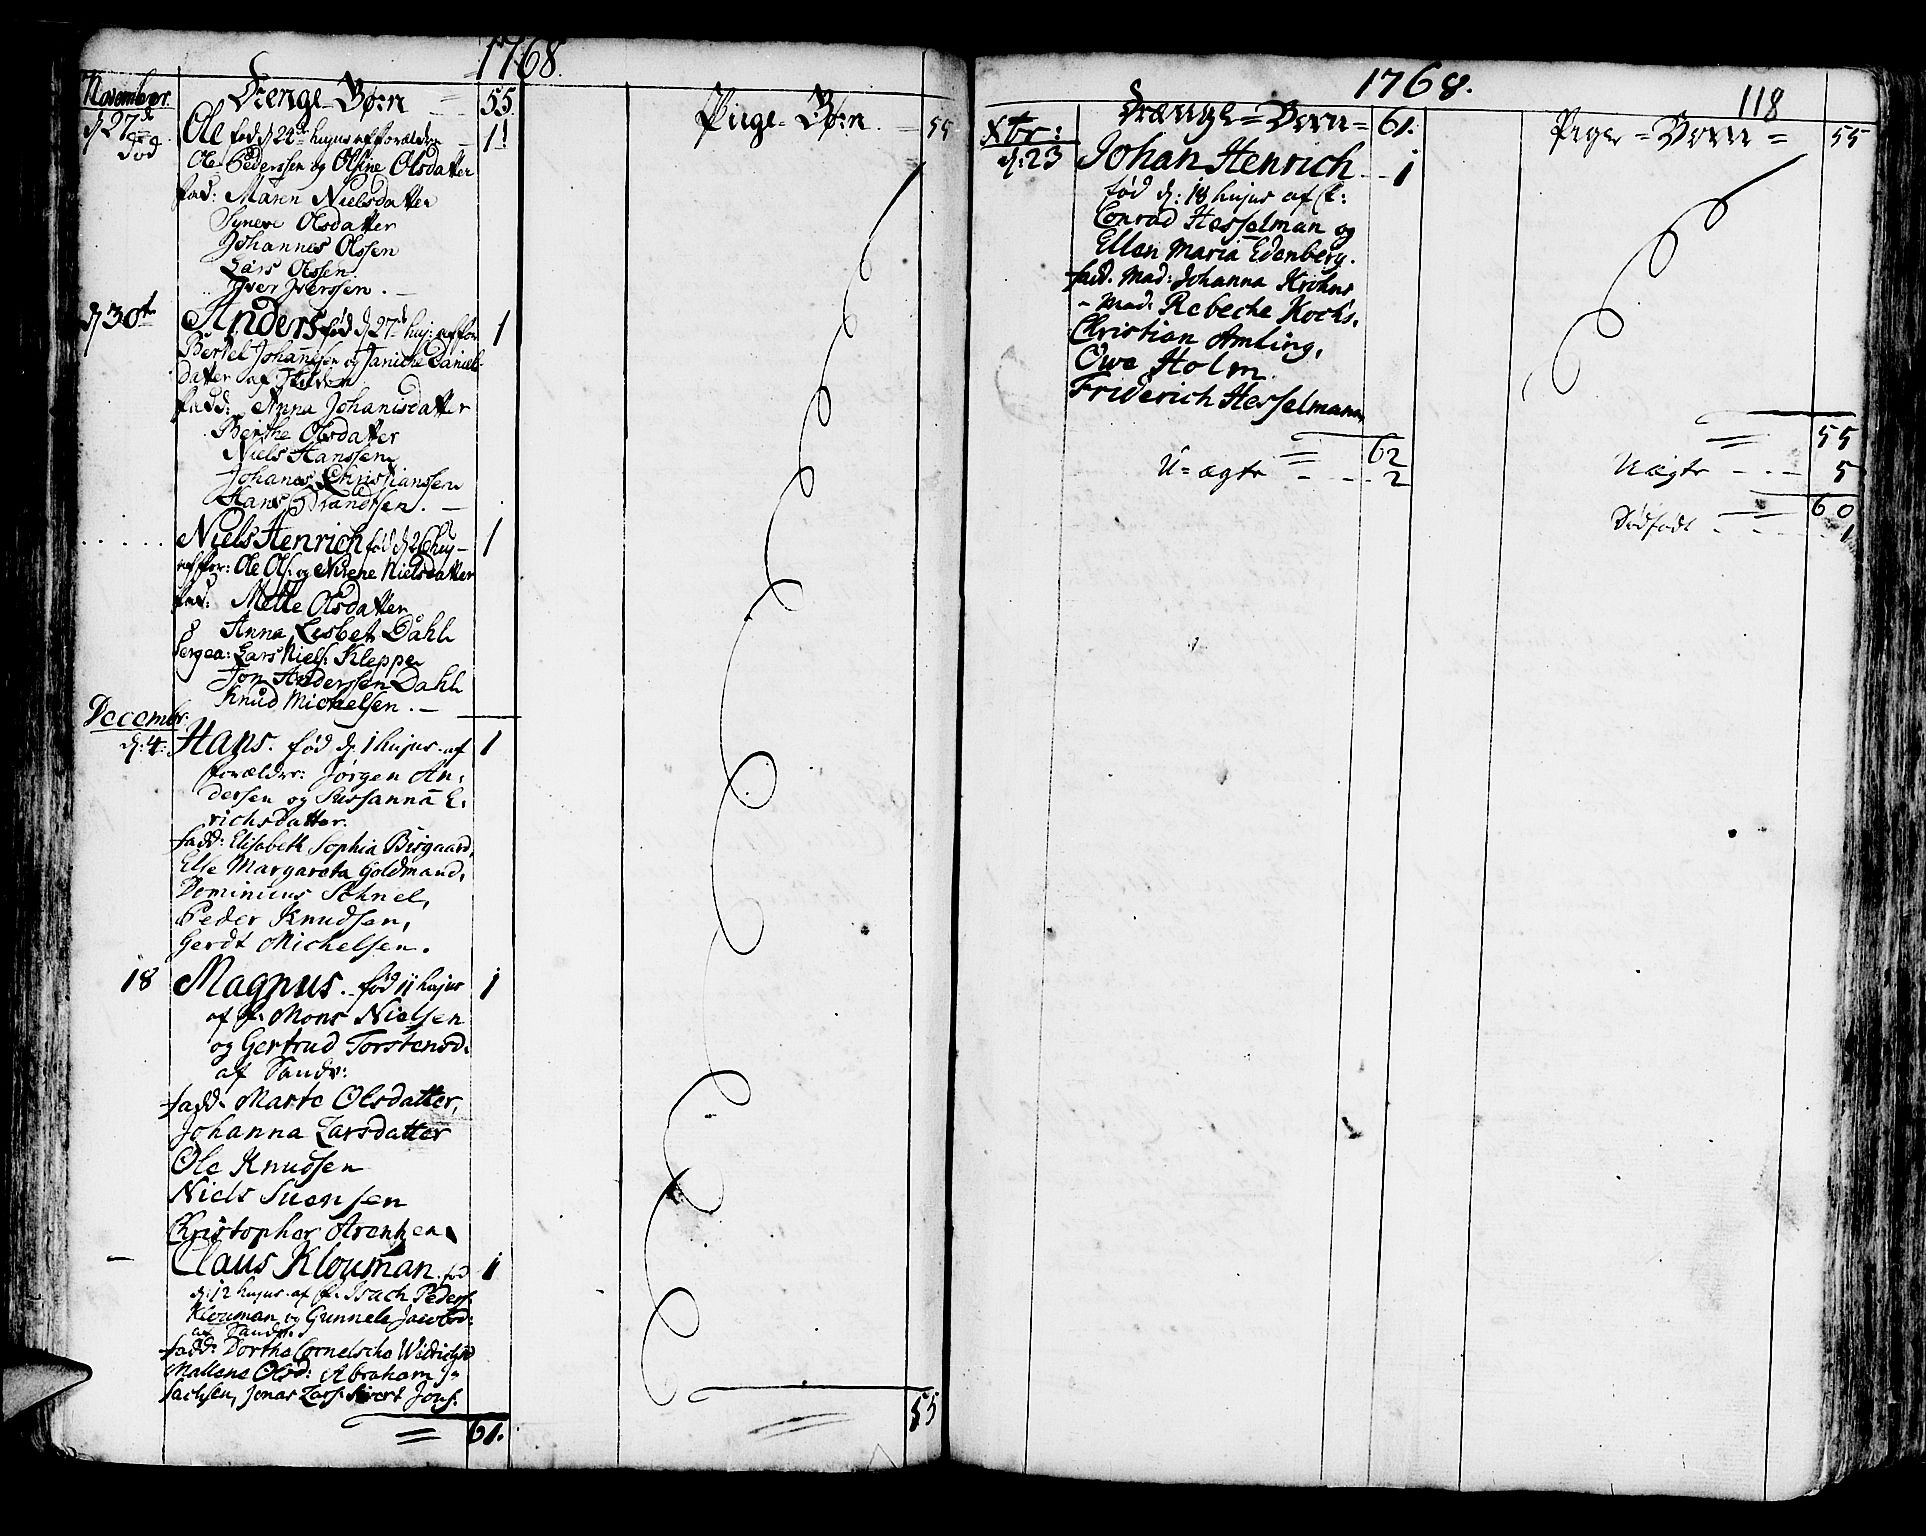 1768.
Novembr. Drenge-Børn = 55.
Piige-Børn. = 55
d 27de død Ole fød d 24de hujus af forældre 1!
Ole Pedersen og Olsine Olsdatter
fad: Maren Nielsdatter
Syneve Olsdatter
Johannes Olssen
Lars Olssen.
Iver Iverssen. —
d 30te Anders fød d 27de huj: af for 1
Bertel Johanssen og Janiche Daniels-
datter af
fadd: Anna Johanisdatter
Berthe Olsdatter
Niels Hanssen
Johanes Christianssen
Hans Brandtsen. —
..... Niels Henrich fød d 26 huj— 1
af for: Ole Ols: og Nielsdatter
fad: Mette Olsdatter
Anna Lisbet Dahl
Sergea: Lars Niels: Klepper
Jon Anderssen Dahl
Knud Michelsen. —
Decembr.
d: 4: Hans. fød d. 1 hujus. af 1
forældre: Jørgen An-
dersen og Sussanna E-
richsdatter.
fadd: Elisabeth Sophia Bisgaard,
Else Margareta Goldmand,
Dominicus Schnel,
Peder Knudsen,
Gerdt Michelsen.
18 Magnus. fød 11 hujus 1
af f. Mons Nielsen
og Gertrud Torstensd.
af Sandv:
fadd. Marte Olsdatter,
Johanna Larsdatter
Ole Knudsen
Niels Suensen
Christopher Arentzen
— Claus Klouman. fød 1
d: 12 hujus. af f. Isach Peders:
Klouman og Gunnele Jacobsd:
af Sandv.
fadd: Dorthe Cornelscha
Mallene Olsd: Abraham I-
sachsen, Jonas Lars: Sivert Jons:
61.
55
1768. 118
Xbr: Drænge=Børn= 61.
Piger=Børn= 55
d: 23 Johan Henrich. 1
fød d: 18 hujus af f:
Conrad Hesselman og
Ellen Maria Edenberg.
fadd. Mad: Johanna Krohns
- Mad: Rebeche Kochs,
Christian Amling,
Owe Holm.
Friderich Hesselmann
62
U=ægte = . . . 2
55
Uægte - . . - 5
60
Dødfødt . - . - 1